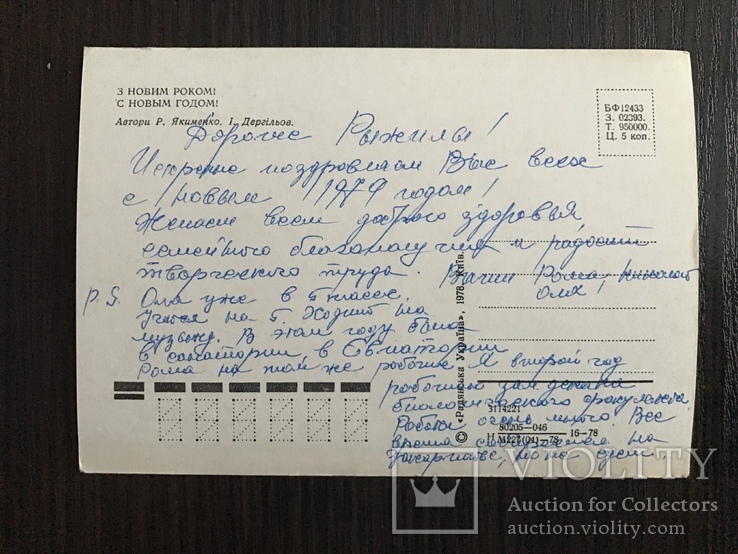 З НОВИМ РОКОМ!
С НОВЫМ ГОДОМ!
Автори Р. Якименко, І. Дергільов.
БФ 12433
З. 02393.
Т. 950000.
Ц. 5 коп.
Дорогие Рыжилы!
Искренне поздравляем Вас всех
с Новым 1979 годом!
Желаем всем доброго здоровья
семейного благополучия и радости
творческого труда. Ваши Рома, Николай
Оля!
P.S. Оля уже в 5 классе.
Учится на 5. Ходит на
музыку. В этом году была
в санатории в Евпатории
Рома на том же работе. Я второй год
работаю зам декана
биологического факультета
Работы очень много. Все
время собираемся на
© «Радянська Україна», 1978. Київ.
3114221
80205—046
Н М227(04)—78 16—78
VIOLITY
Auction for Collectors
auction.violity.com